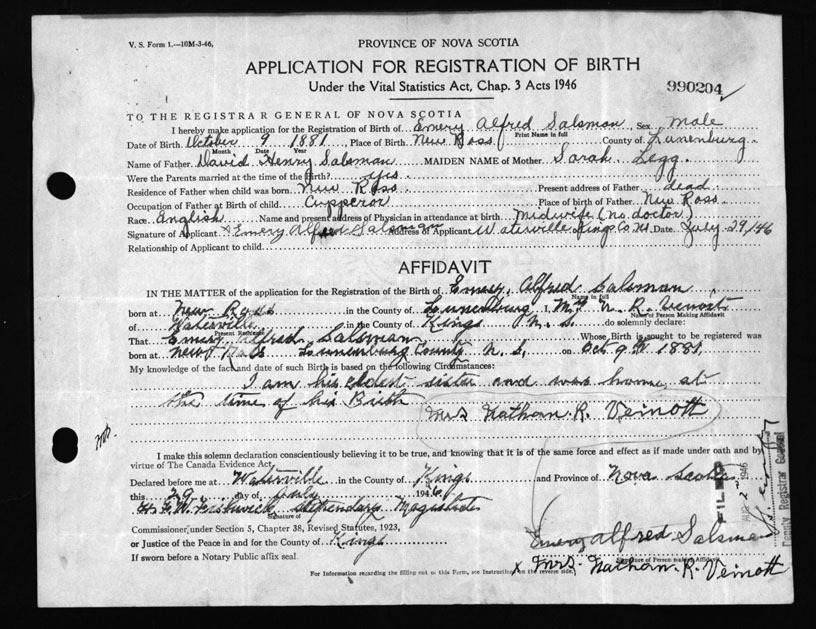 V. S. Form 1.—10M-3-46.
PROVINCE OF NOVA SCOTIA
APPLICATION FOR REGISTRATION OF BIRTH
Under the Vital Statistics Act, Chap. 3 Acts 1946
990204
TO THE REGISTRAR GENERAL OF NOVA SCOTIA
I hereby make application for the Registration of Birth of Emery Alfred Salsman Sex Male
Print Name in full
Date of Birth October 9 1881 Place of Birth New Ross County of Lunenburg.
Month Date Year
Name of Father David Henry Salsman MAIDEN NAME of Mother Sarah Legg.
Were the Parents married at the time of the Birth? yes.
Residence of Father when child was born New Ross Present address of Father dead.
Occupation of Father at Birth of child Cupperor Place of birth of Father New Ross
Race English Name and present address of Physician in attendance at birth Midwife (no doctor)
Signature of Applicant x Emery Alfred Salsman Address of Applicant Waterville Kings Co NS. Date July 29/46
Relationship of Applicant to child
AFFIDAVIT
IN THE MATTER of the application for the Registration of Birth of Emery Alfred Salsman
Name in full
born at New Ross in the County of Lunenburg, I, N. R. Veinott
Name of Person Making Affidavit
of Waterville in the County of Kings N. S. do solemnly declare:
Present Residence
That Emery Alfred Salsman Whose Birth is sought to be registered was
born at New Ross Lunenburg County N. S. on Oct 9 1881.
My knowledge of the fact and date of such Birth is based on the following Circumstances:
I am his eldest sister and was home at
the time of his Birth Mrs Nathan. R. Veinott
I make this solemn declaration conscientiously believing it to be true, and knowing that it is of the same force and effect as if made under oath and by
virtue of The Canada Evidence Act.
Declared before me at Waterville in the County of Kings and Province of Nova Scotia
this 29 day of July 1946.
Stipendiary Magistrate
Signature of
Commissioner, under Section 5, Chapter 38, Revised Statutes, 1923,
or Justice of the Peace in and for the County of Kings
If sworn before a Notary Public affix seal.
FILED
AUG 2 1946
Deputy Registrar General
Emery Alfred Salsman
Signature of Person making Affidavit
x Mrs. Nathan. R. Veinott
For Information regarding the filling out of this Form, see Instruction on the reverse side.